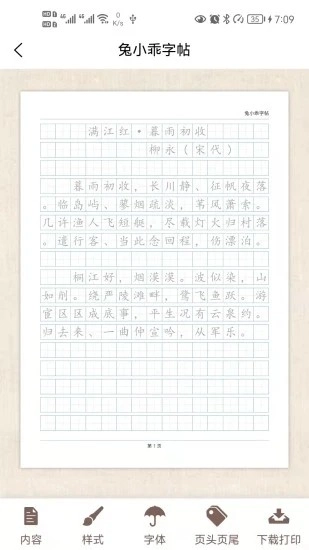 0
K/s
35
7:09
兔小乖字帖
兔小乖字帖
满江红·暮雨初收
柳永(宋代)
暮雨初收,长川静、征帆夜落
。临岛屿、蓼烟疏淡,苇风萧索。
几许渔人飞短艇,尽载灯火归村落
。遣行客、当此念回程,伤漂泊。
桐江好,烟漠漠。波似染,山
如削。绕严陵滩畔,鹭飞鱼跃。游
宦区区成底事,平生况有云泉约。
归去来、一曲仲宣吟,从军乐。
第1页
内容
样式
字体
页头页尾
下载打印